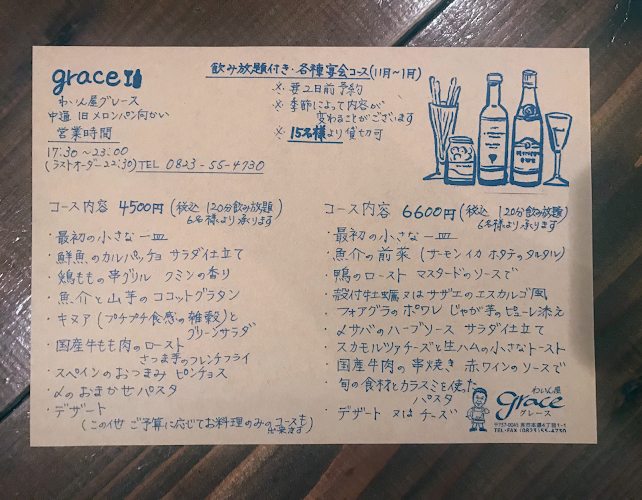 grace
わいん屋グレース
中通 旧メロンパン向かい
営業時間
17:30〜23:00
(ラストオーダー22:30) TEL 0823-55-4730
飲み放題付き・各種宴会コース(11月〜1月)
※ 要2日前予約
※ 季節によって内容が
変わることがございます
※ 15名様より貸切可
コース内容 4500円(税込 120分飲み放題)
6名様より承ります
・最初の小さな一皿
・鮮魚のカルパッチョ サラダ仕立て
・鶏ももの串グリル クミンの香り
・魚介と山芋のココットグラタン
・キヌア(プチプチ食感の雑穀)と
グリーンサラダ
・国産牛もも肉のロースト
さつま芋のフレンチフライ
・スペインのおつまみ ピンチョス
・〆のおまかせパスタ
・デザート
(この他 ご予算に応じてお料理のみのコースも
出来ます)
コース内容 6600円(税込 120分飲み放題)
6名様より承ります
・最初の小さな一皿
・魚介の前菜(サーモン イカ ホタテのタルタル)
・鴨のロースト マスタードのソースで
・殻付牡蠣又はサザエのエスカルゴ風
・フォアグラのポワレ じゃが芋のピューレ添え
・〆サバのハーブソース サラダ仕立て
・スカモルツァチーズと生ハムの小さなトースト
・国産牛肉の串焼き 赤ワインのソースで
・旬の食材とカラスミを使った
パスタ
・デザート 又は チーズ
わいん屋
grace
グレース
〒737-0045 呉市本通4丁目1-1
TEL・FAX (0823)55-4730